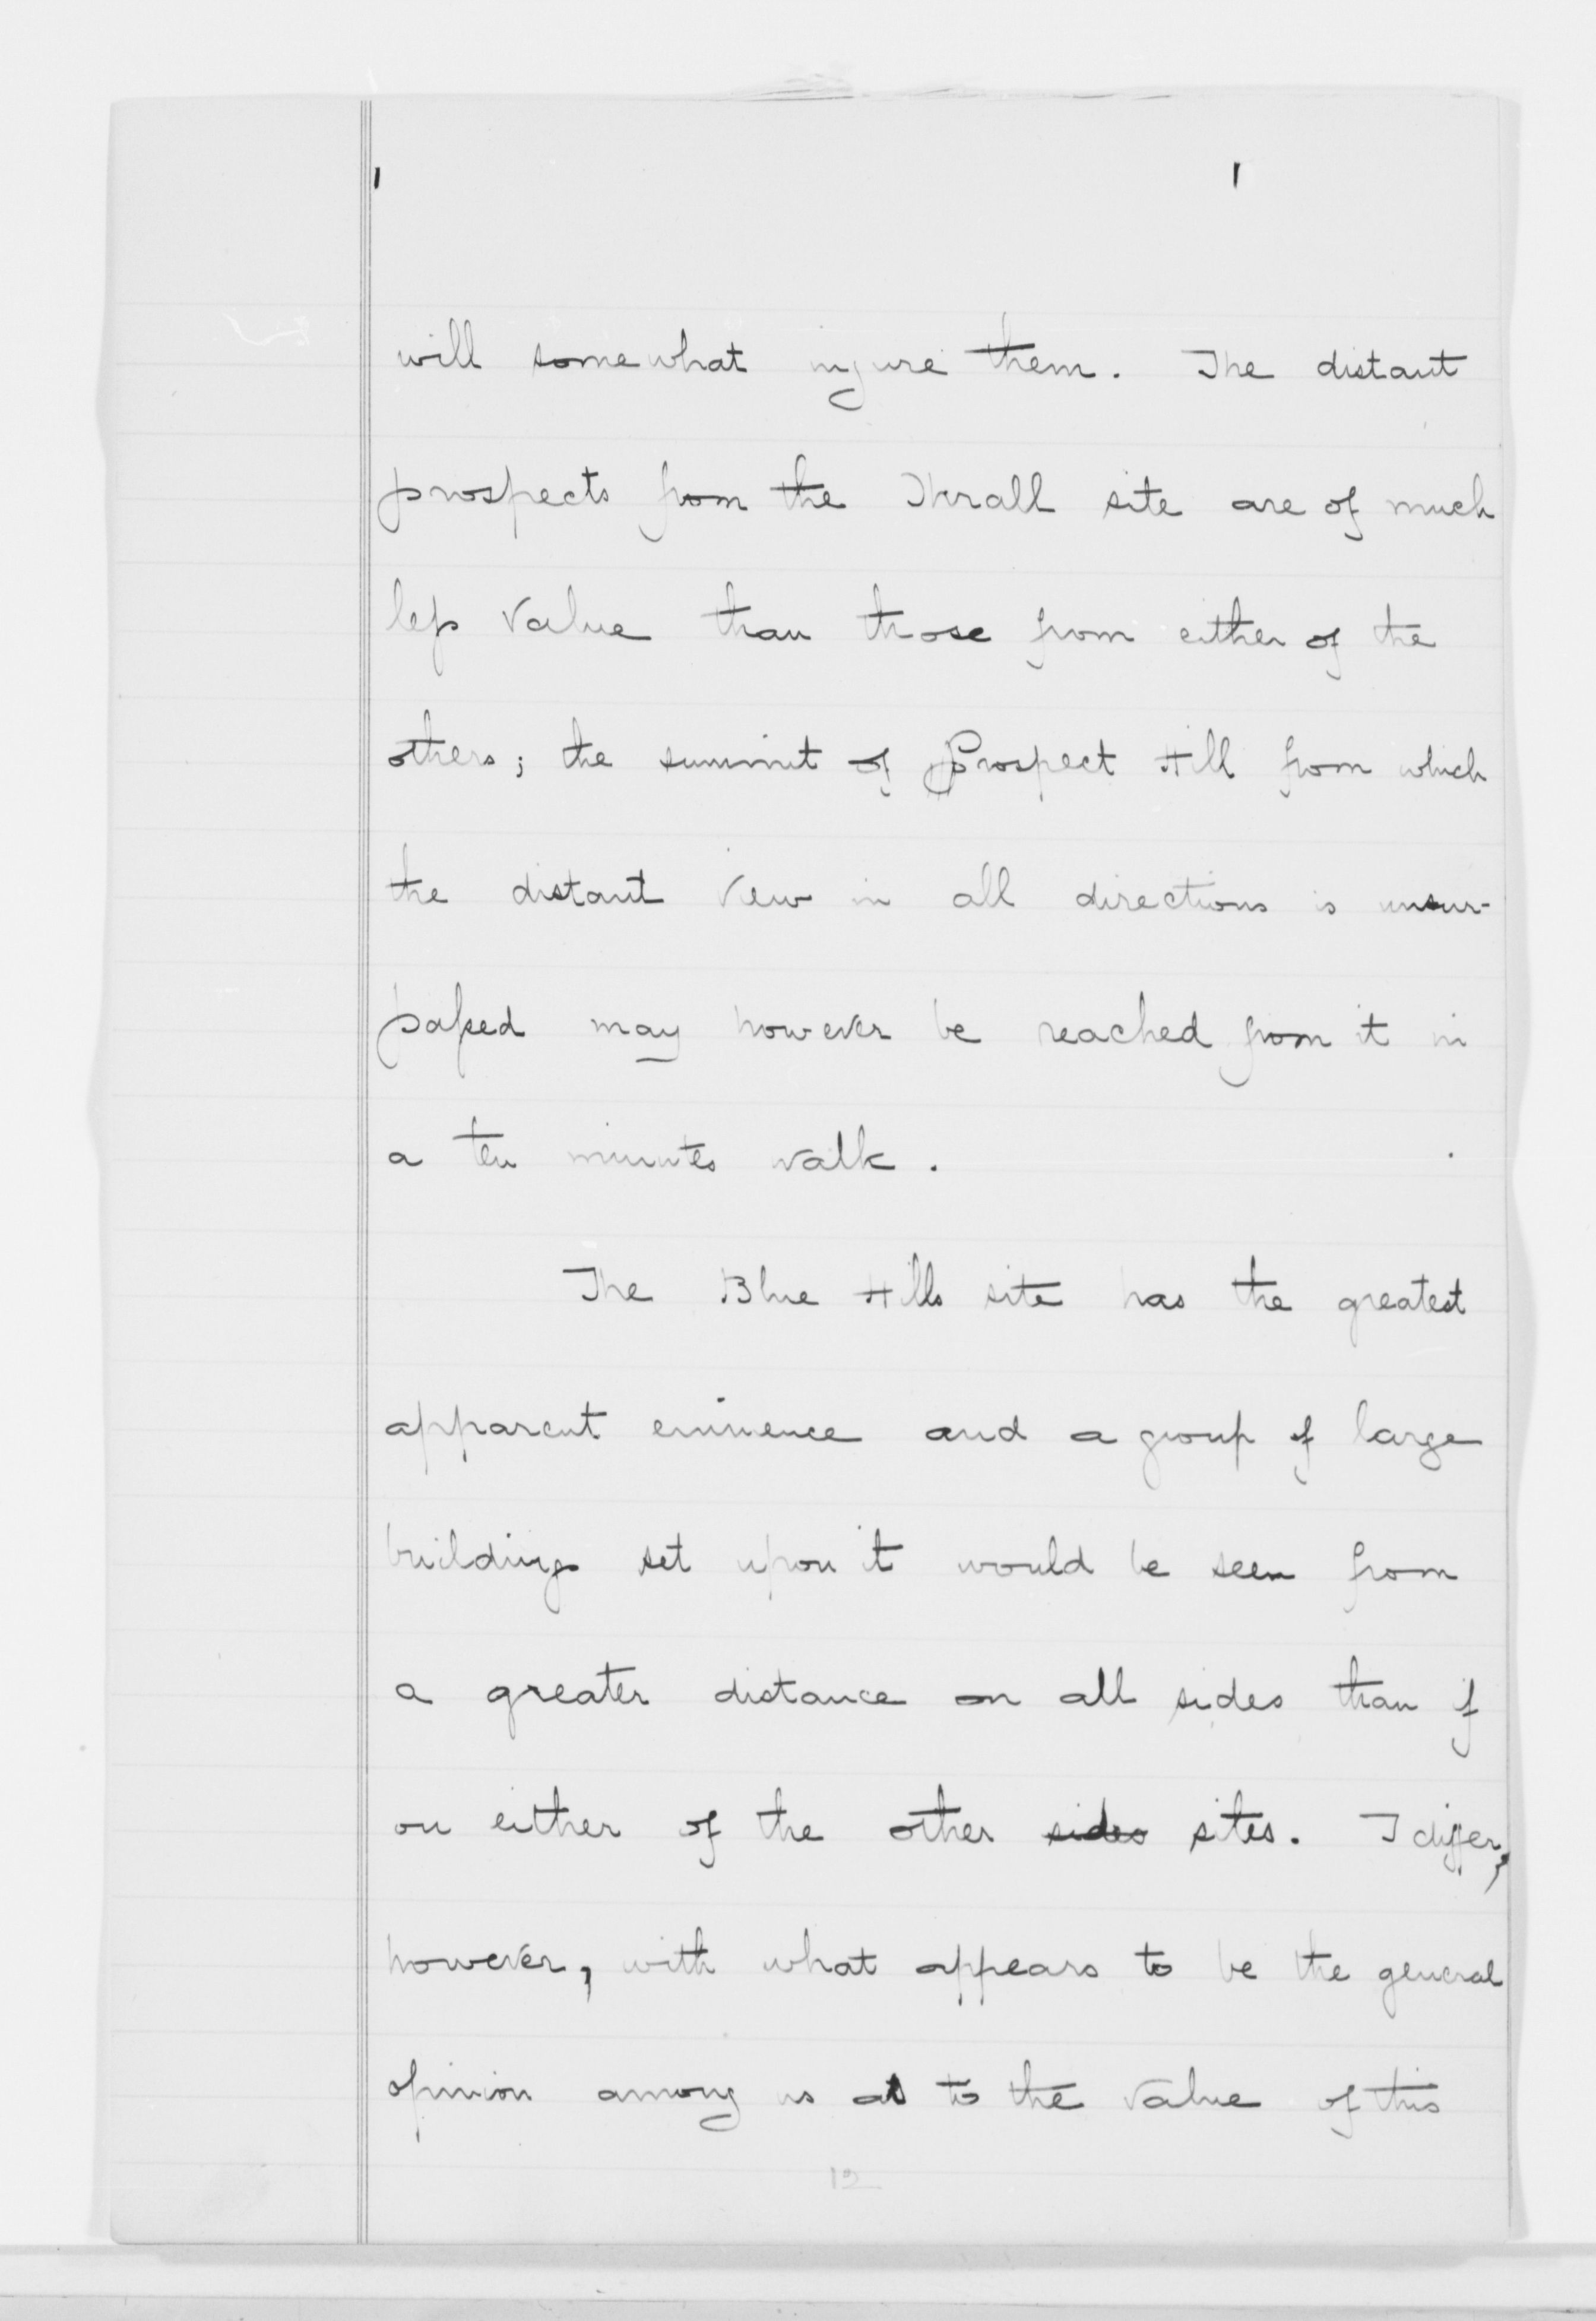 will somewhat injure them. The distant
prospects from the Thrall site are of much
less value than those from either of the
others; the summit of Prospect Hill from which
the distant view in all directions is unsur-
passed may however be reached from it in
a ten minutes walk.
The Blue Hills site has the greatest
apparent eminence and a group of large
buildings set upon it would be seen from
a greater distance on all sides than if
on either of the other sides sites. I differ,
however, with what appears to be the general
opinion among us as to the value of this
12